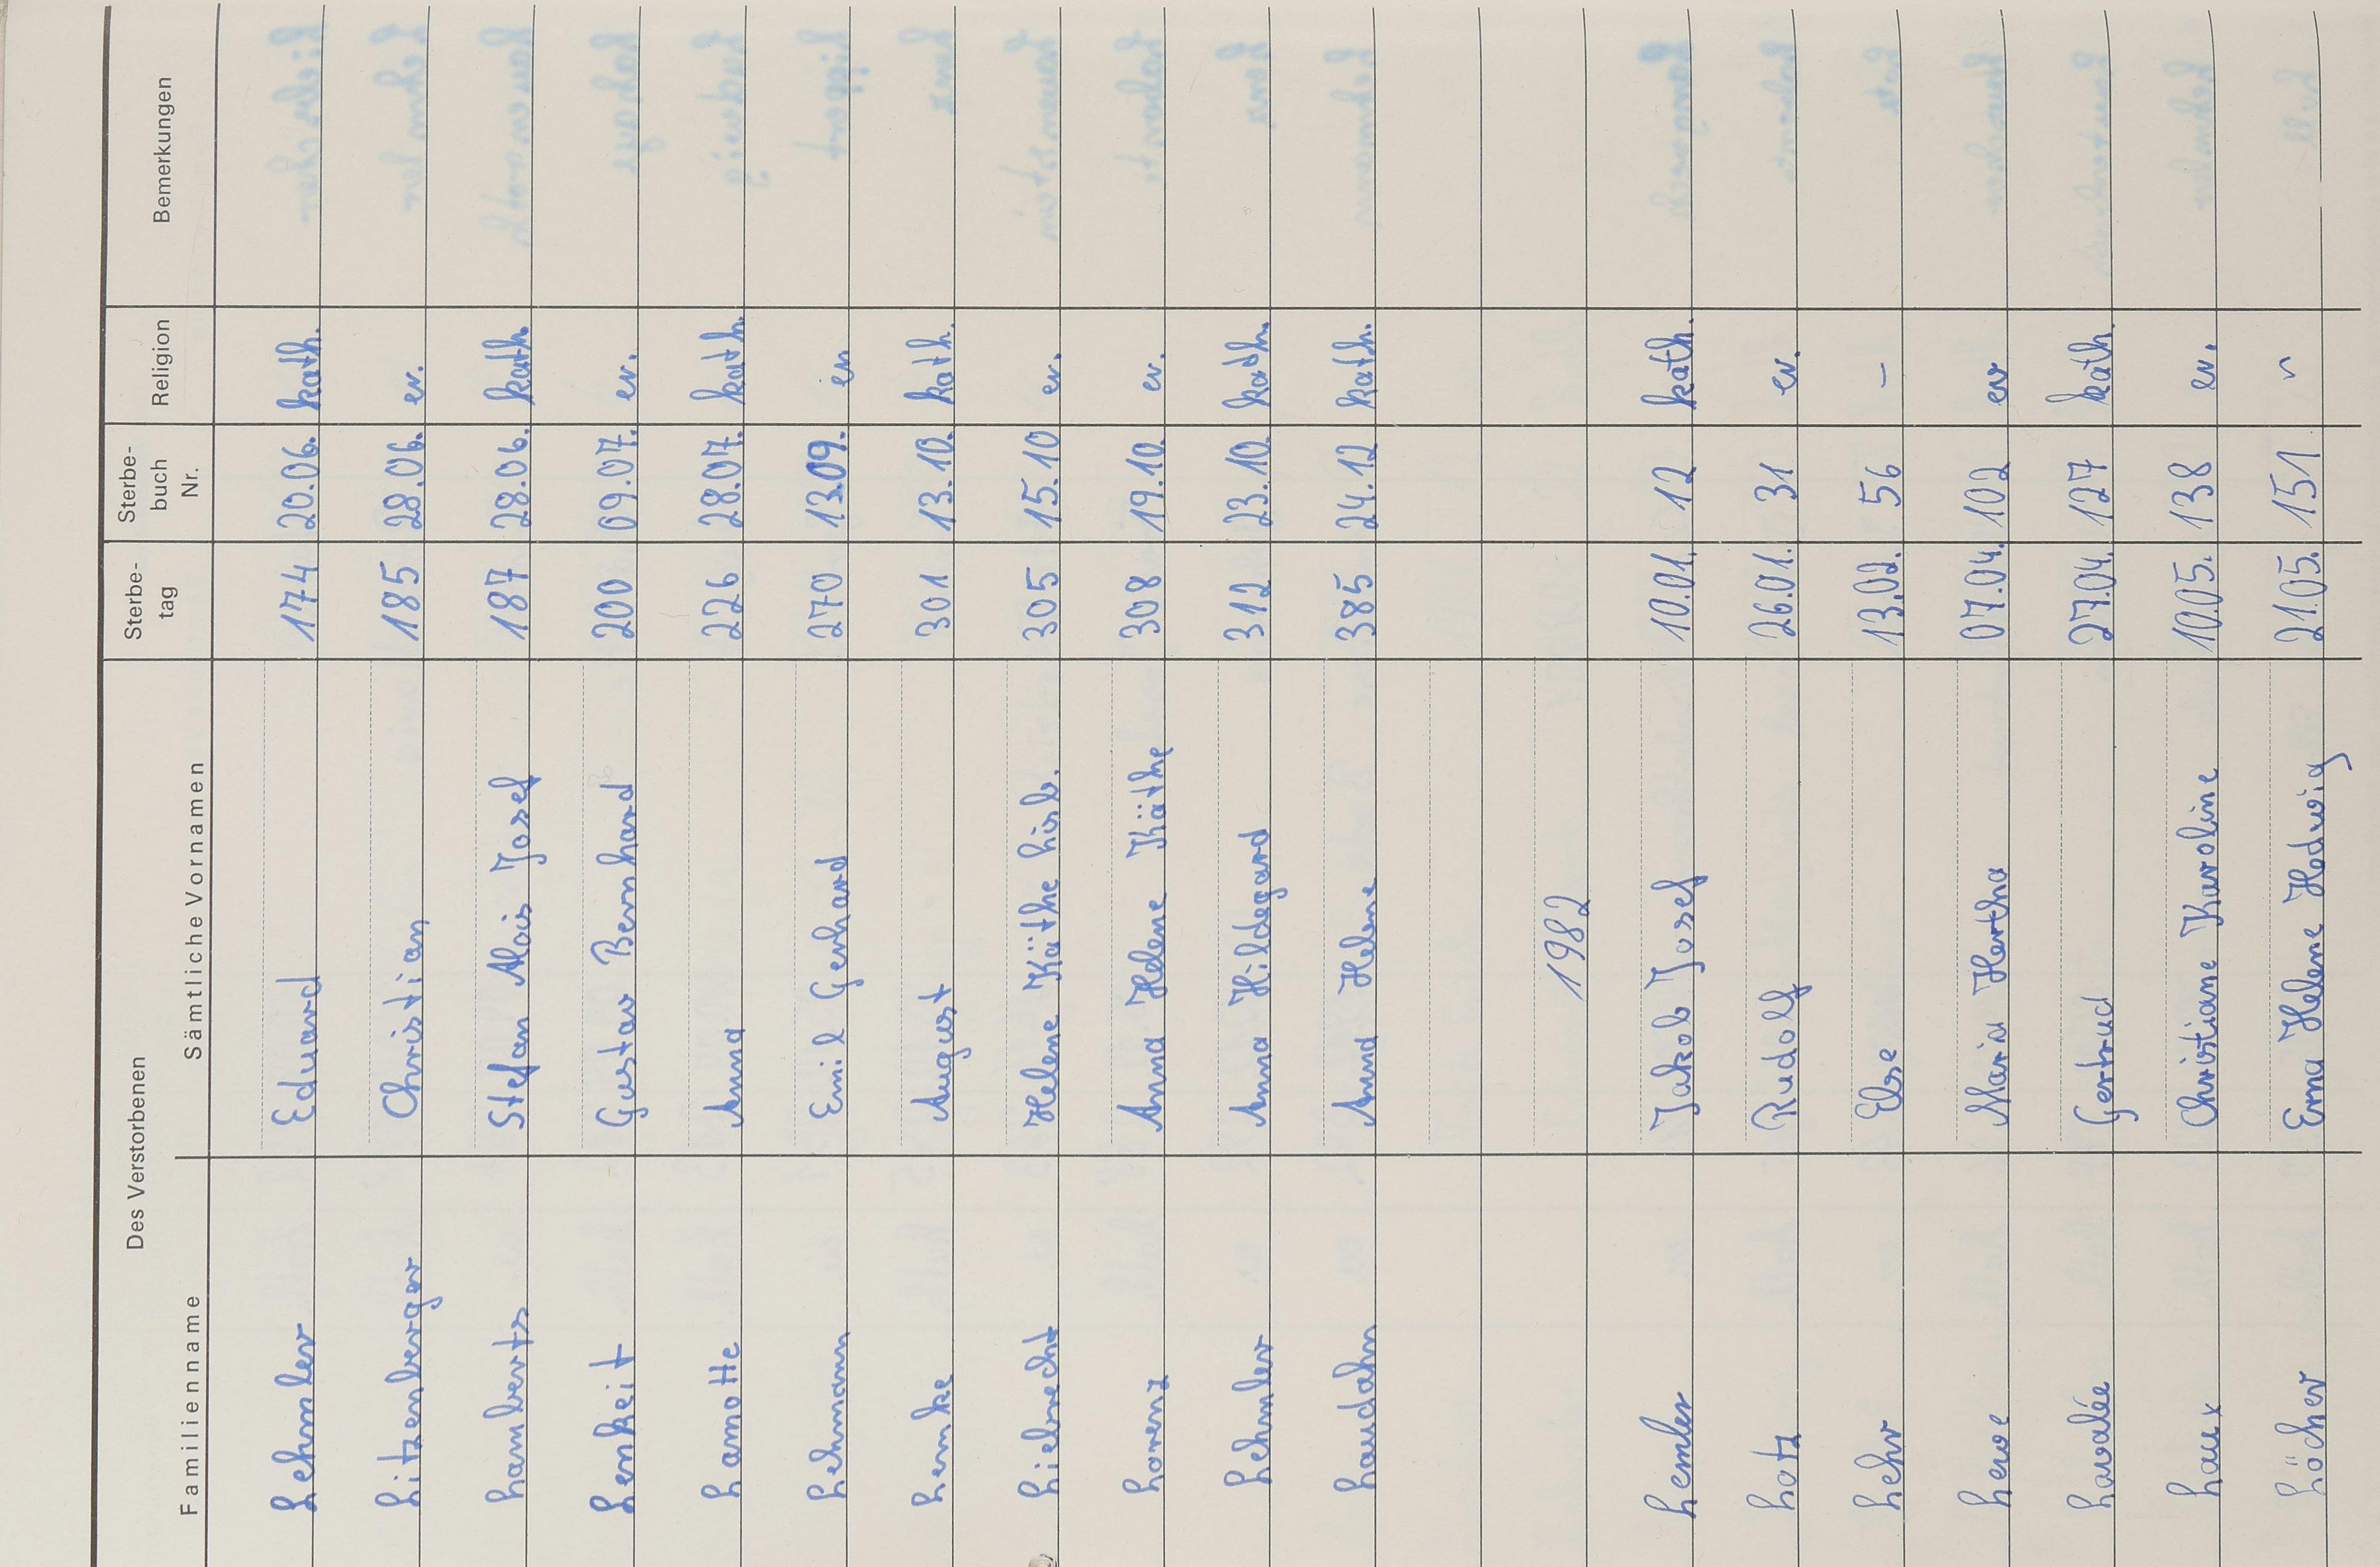 Des Verstorbenen
Familienname Sämtliche Vornamen Sterbe-tag Sterbe-buch Nr. Religion Bemerkungen
Lehmler Eduard 174 20.06. kath.
Litzenberger Christian 185 28.06. ev.
Lamberts Stefan Alois Josef 187 28.06. kath.
Lenkeit Gustav Bernhard 200 09.07. ev.
Lamotte Anna 226 28.07. kath.
Lehmann Emil Gerhard 270 13.09. ev
Lemke August 301 13.10. kath.
Liebrecht Helene Käthe Lisb. 305 15.10 ev.
Lorenz Anna Helene Käthe 308 19.10. ev.
Lehmler Anna Hildegard 312 23.10. kath.
Laudahn Anna Helene 385 24.12 kath.
1982
Lemler Jakob Josef 10.01. 12 kath.
Lotz Rudolf 26.01. 31 ev.
Lehr Else 13.02. 56 –
Lewe Maria Hertha 07.04. 102 ev
Lavdée Gertrud 27.04. 127 kath.
Laux Christiane Karoline 10.05. 138 ev.
Löcher Erna Helene Hedwig 21.05. 151 "